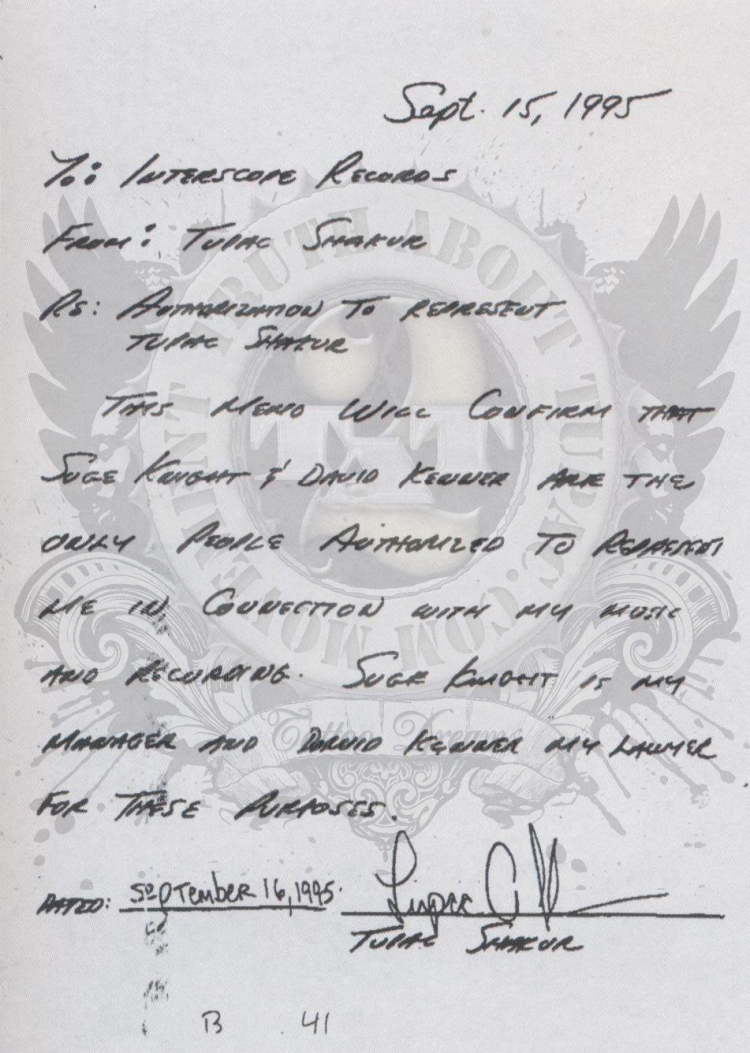 Sept. 15, 1995
To: Interscope Records
From: Tupac Shakur
Re: Authorization to represent
Tupac Shakur
This Memo Will Confirm that
Suge Knight & David Kenner are the
only People Authorized to Represent
me in Connection with my music
and recording. Suge Knight is my
manager and David Kenner my lawyer
for these Purposes.
Dated: September 16, 1995.
Tupac Shakur
B 41
TRUTH ABOUT TUPAC.COM MOVEMENT
2
TAT
Tattoo Dreams